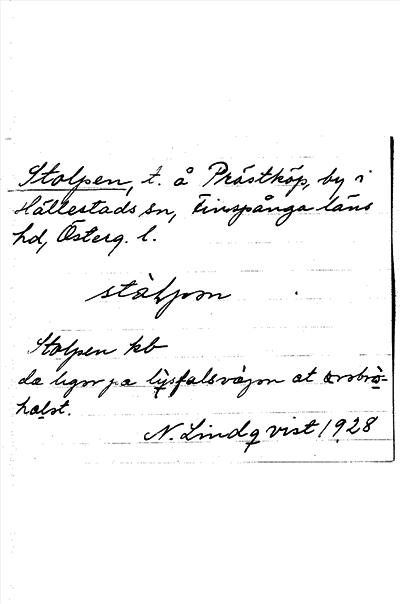 Stolpen, t. å Prästköp, by i
Hällestads sn, Finspånga läns
hd, Österg. l.
stàlpən
Stolpen kb
da ligər pa lysfalsvägən at
halst.
N. Lindqvist 1928